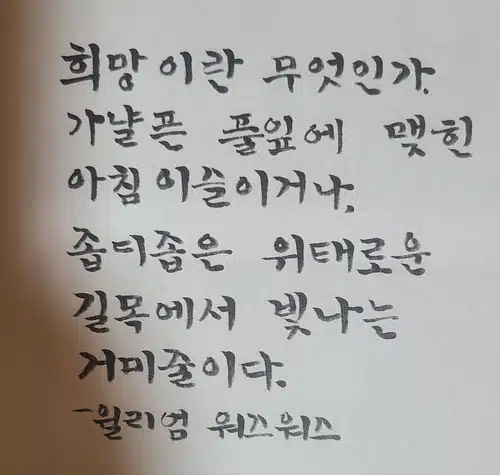 희망이란 무엇인가.
가냘픈 풀잎에 맺힌
아침이슬이거나,
좁디좁은 위태로운
길목에서 빛나는
거미줄이다.
-윌리엄 워즈워스